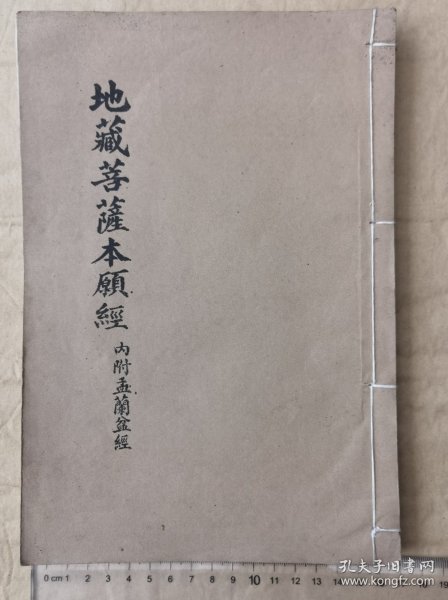 地藏菩薩本願經
內附盂蘭盆經
0cm 1 2 3 4 5 6 7 8 9 10 11 12 13 14
19
孔夫子旧书网
www.kongfz.com